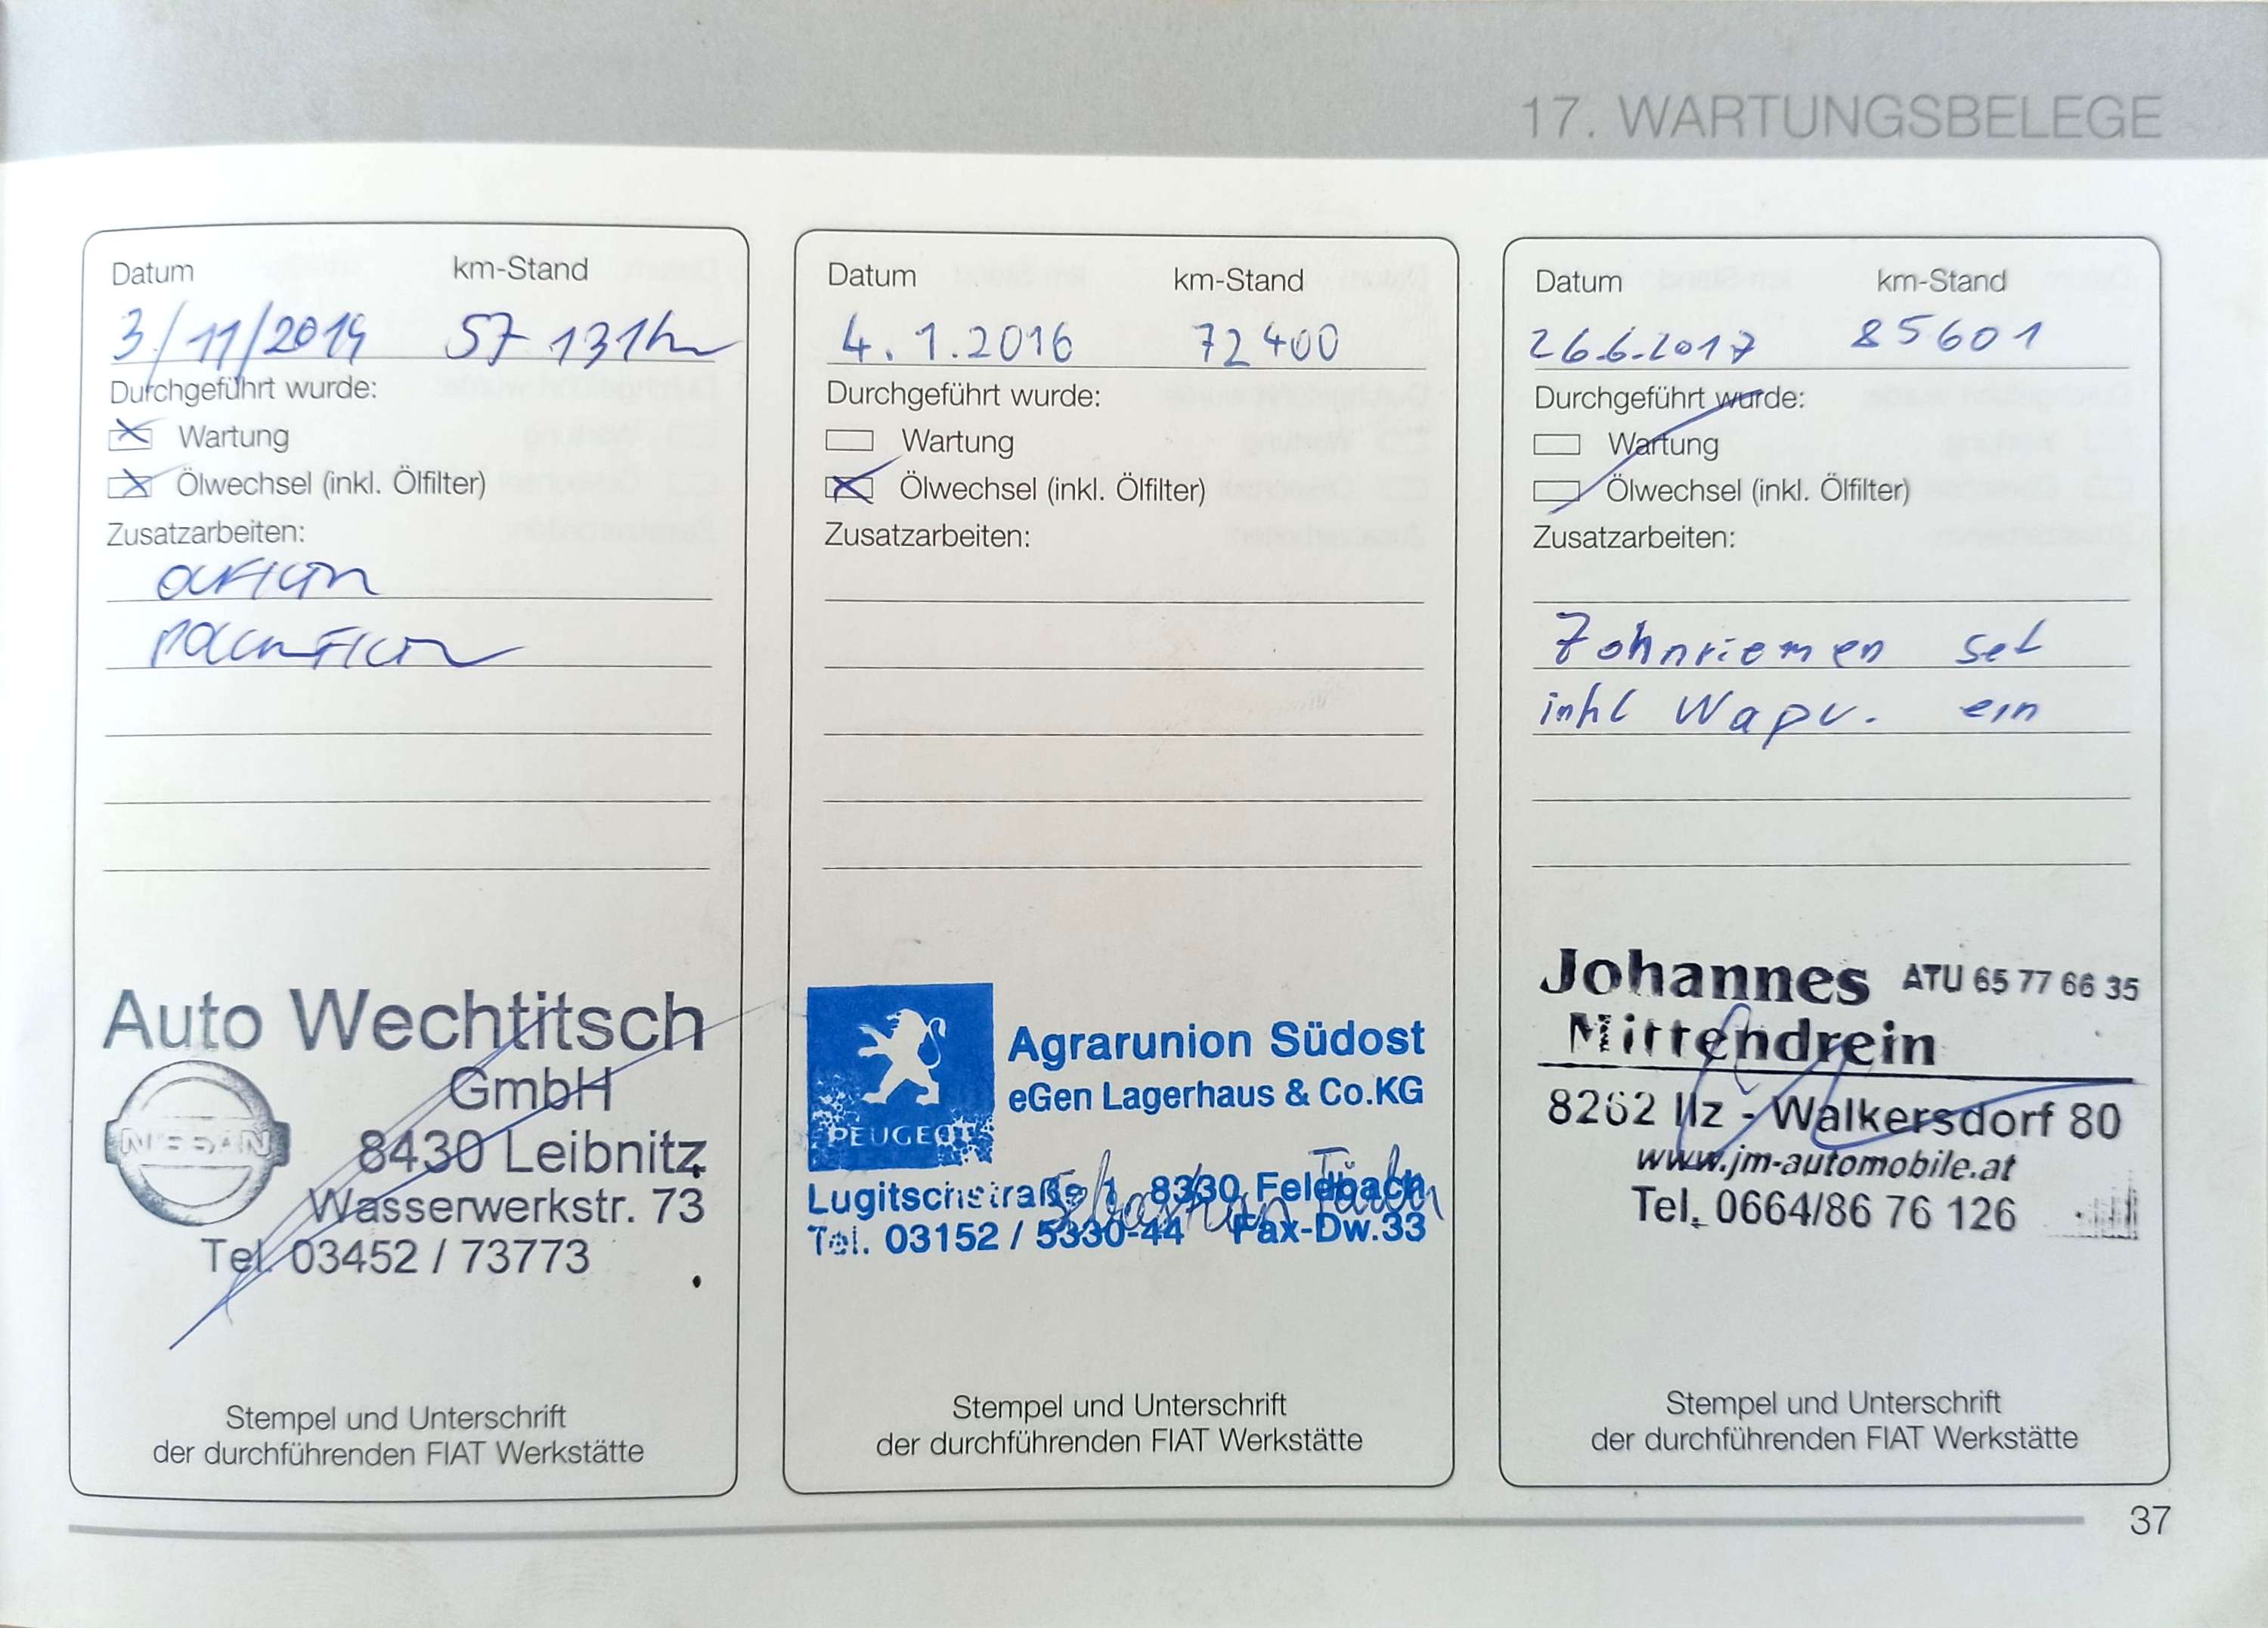 17. WARTUNGSBELEGE
Datum km-Stand
3/11/2014 57 131km
Durchgeführt wurde:
Wartung
Ölwechsel (inkl. Ölfilter)
Zusatzarbeiten:
Auto Wechtitsch
GmbH
NISSAN
8430 Leibnitz
Wasserwerkstr. 73
Tel. 03452 / 73773
Stempel und Unterschrift
der durchführenden FIAT Werkstätte
Datum km-Stand
4.1.2016 72400
Durchgeführt wurde:
Wartung
Ölwechsel (inkl. Ölfilter)
Zusatzarbeiten:
Agrarunion Südost
eGen Lagerhaus & Co.KG
PEUGEOT
Lugitschstraße 1, 8330 Feldbach
Tel. 03152 / 5330-44 Fax-Dw.33
Stempel und Unterschrift
der durchführenden FIAT Werkstätte
Datum km-Stand
26.6.2017 85601
Durchgeführt wurde:
Wartung
Ölwechsel (inkl. Ölfilter)
Zusatzarbeiten:
Zahnriemen set
inkl Wapu. ein
Johannes ATU 65 77 66 35
Mittendrein
8262 Ilz - Walkersdorf 80
www.jm-automobile.at
Tel. 0664/86 76 126
Stempel und Unterschrift
der durchführenden FIAT Werkstätte
37